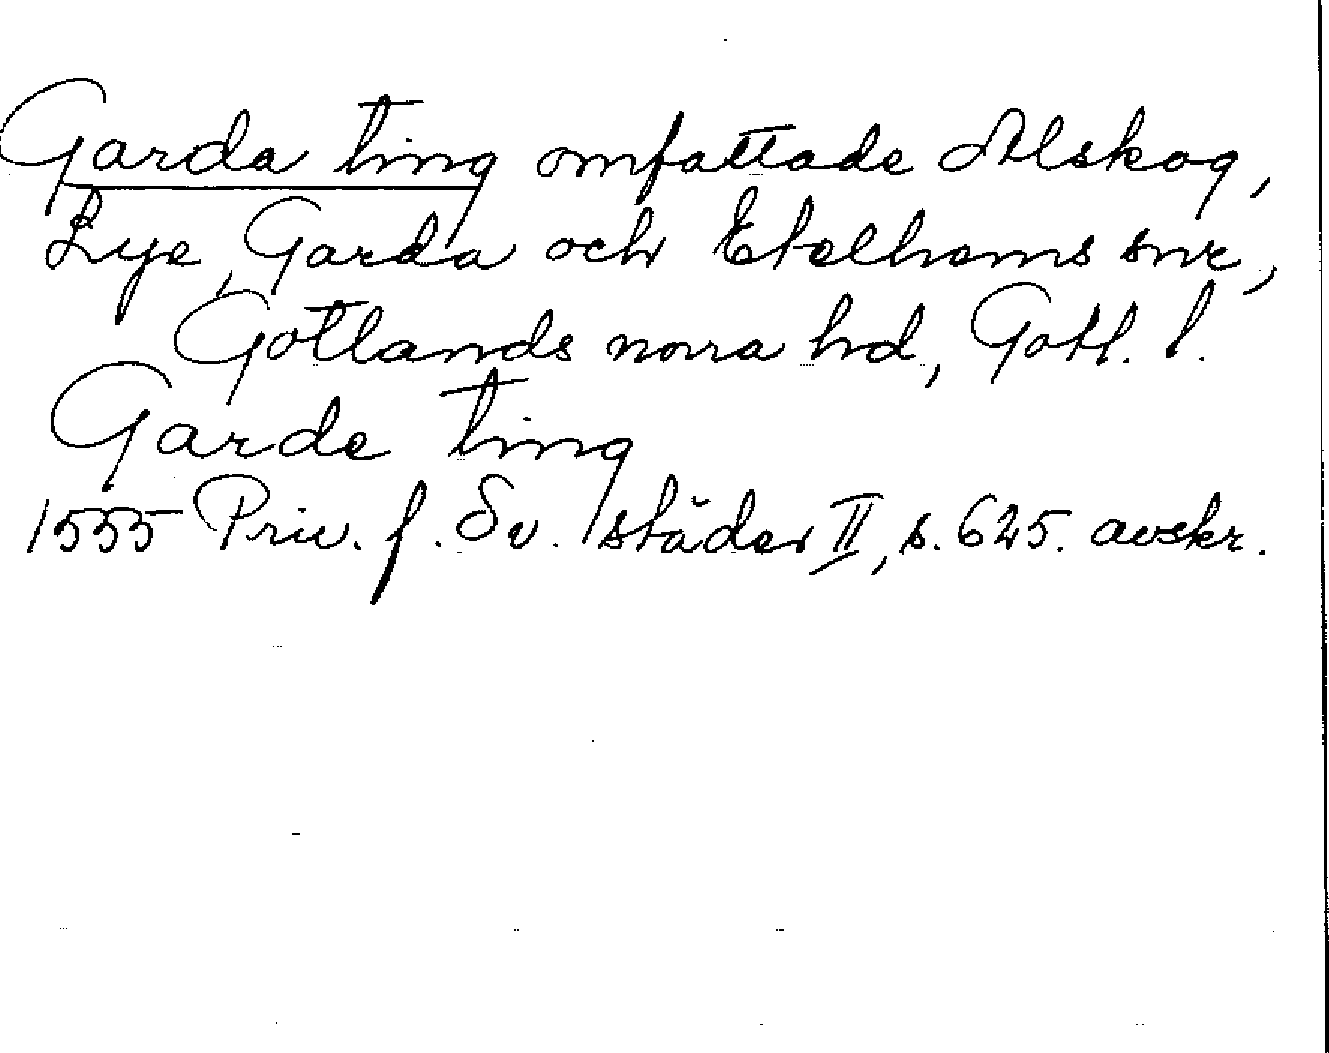 Garda ting omfattade Alskog,
Lye, Garda och Etelhems snr,
Gotlands norra hd, Gotl. l.
Garde ting
1555 Priv. f. Sv. städer II, s. 625. avskr.